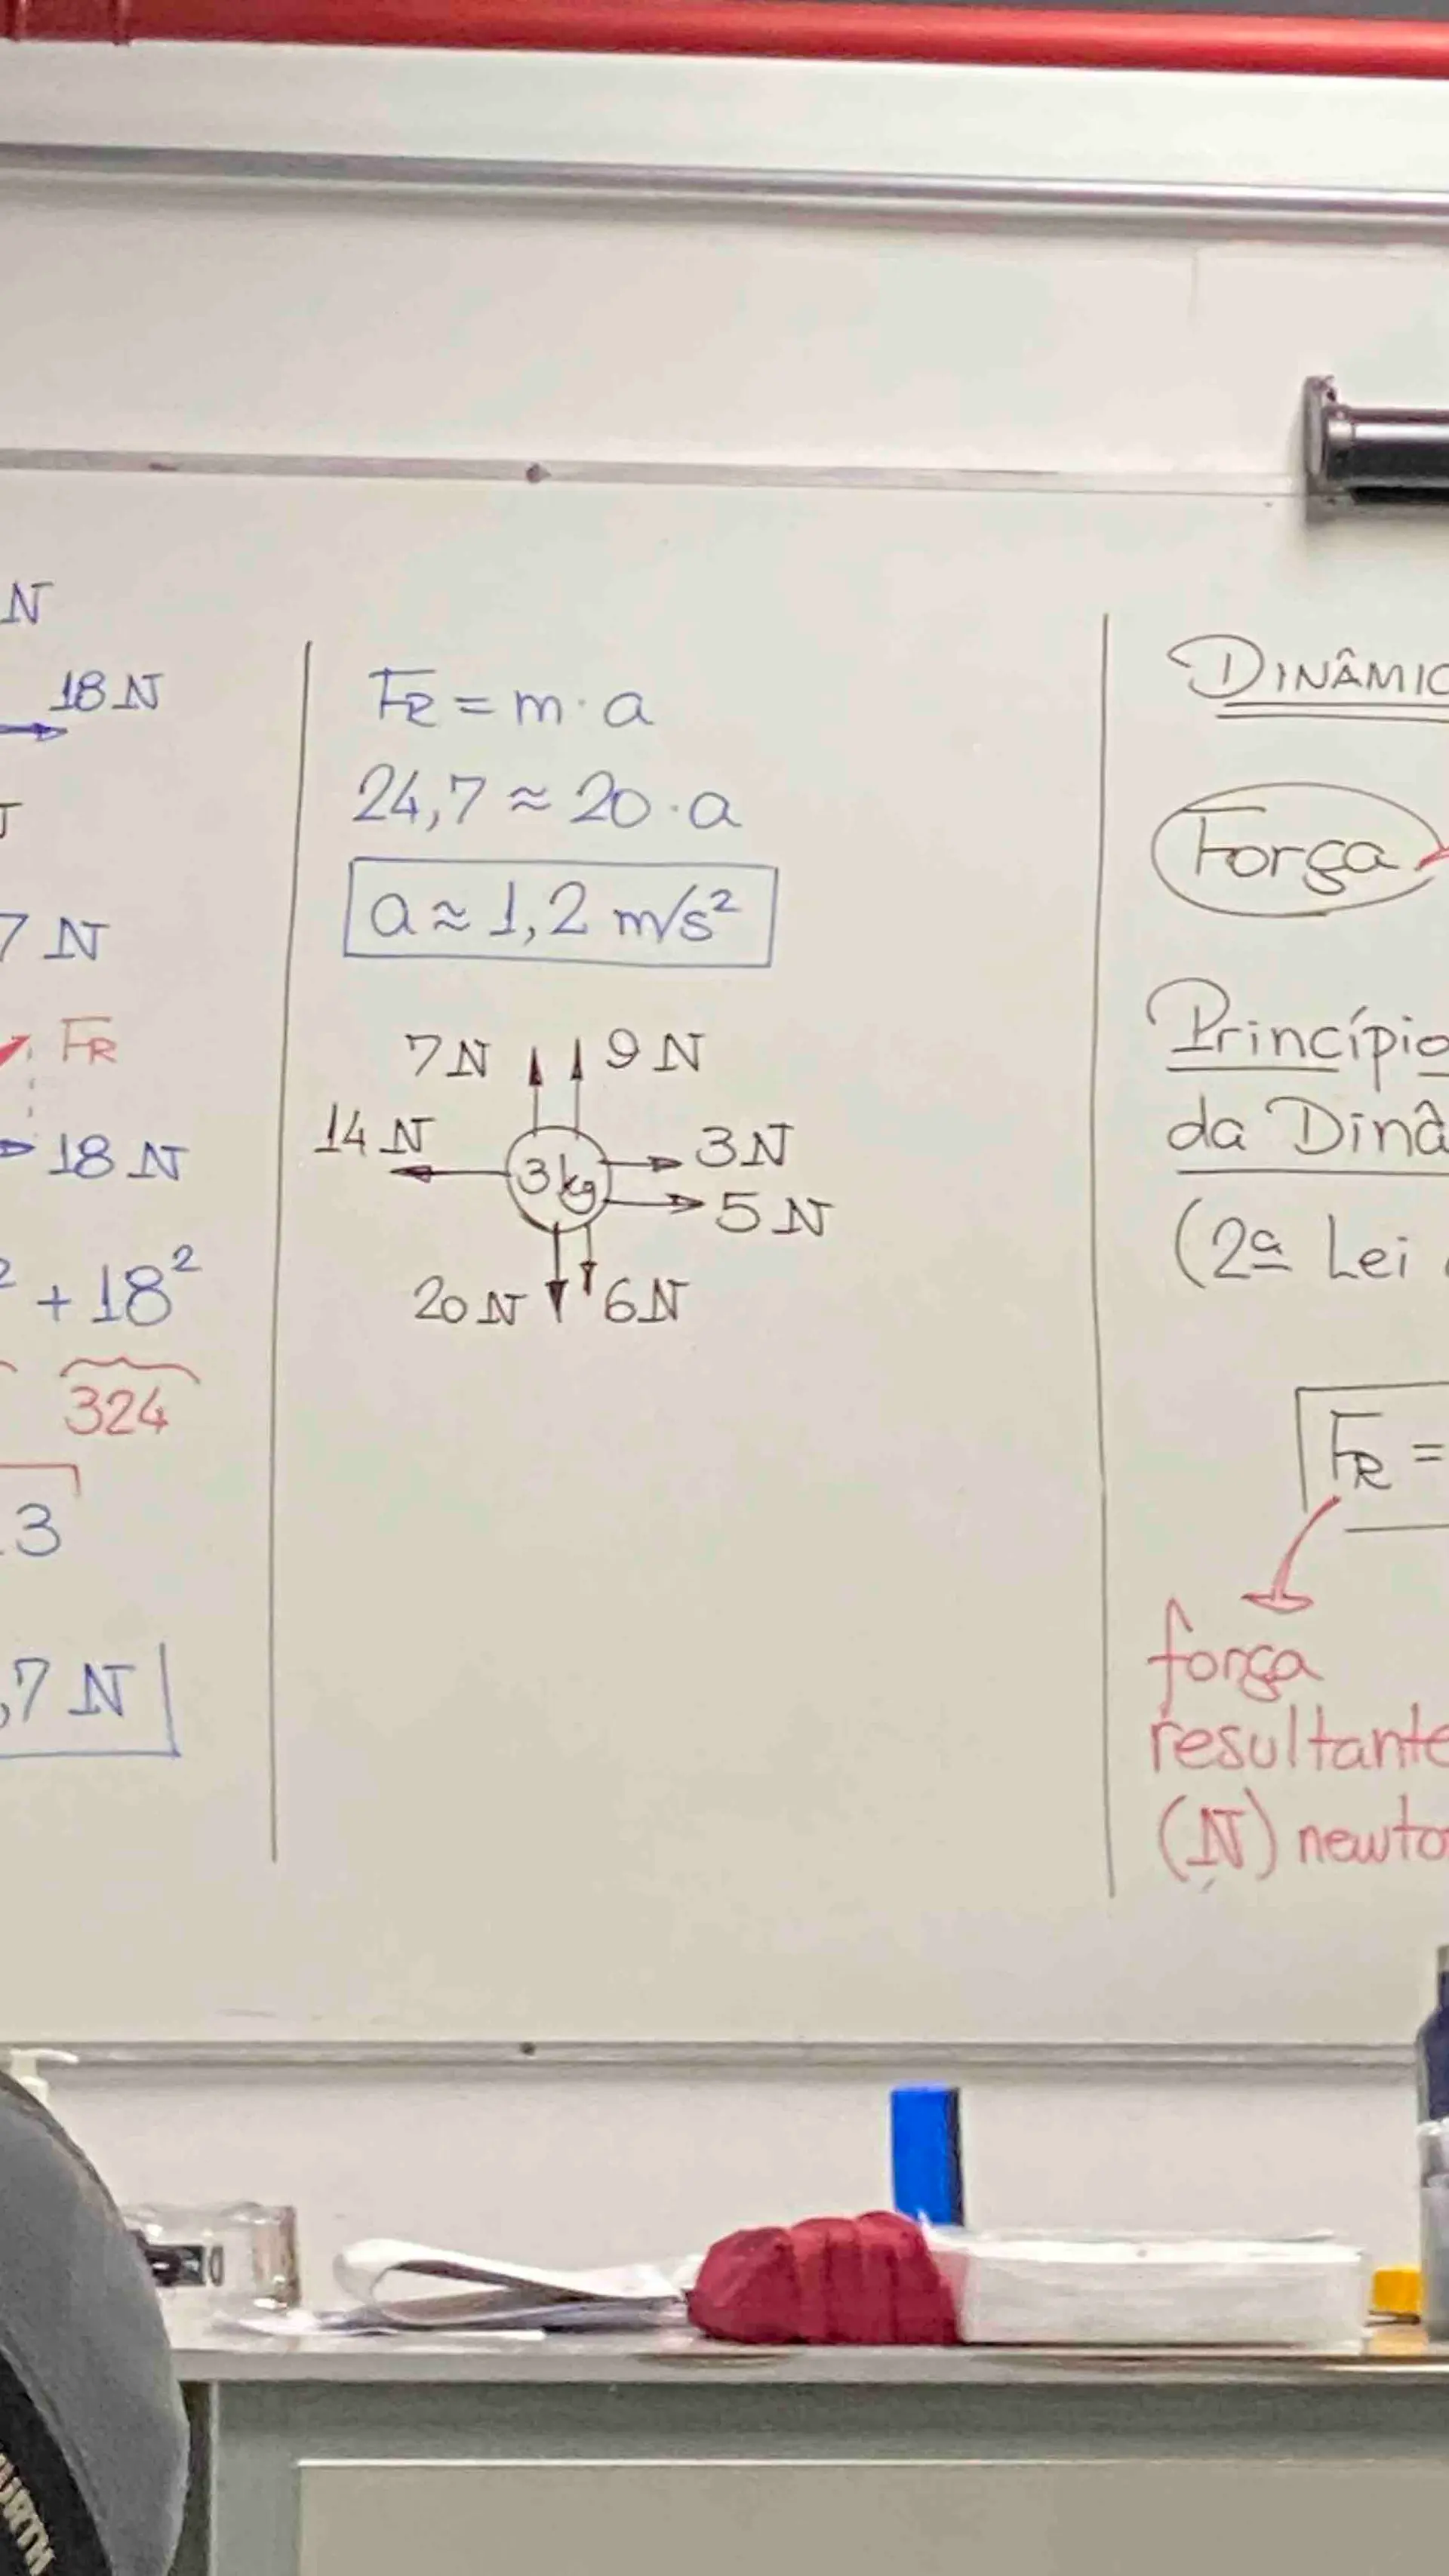 N
18 N
7 N
FR
18 N
² + 18²
324
3
,7 N
FR = m · a
24,7 ≈ 20 · a
a ≈ 1,2 m/s²
7 N 9 N
14 N 3 kg 3 N
5 N
20 N 6 N
Força
Princípio
(2ª Lei
FR =
força
resultante
(N)